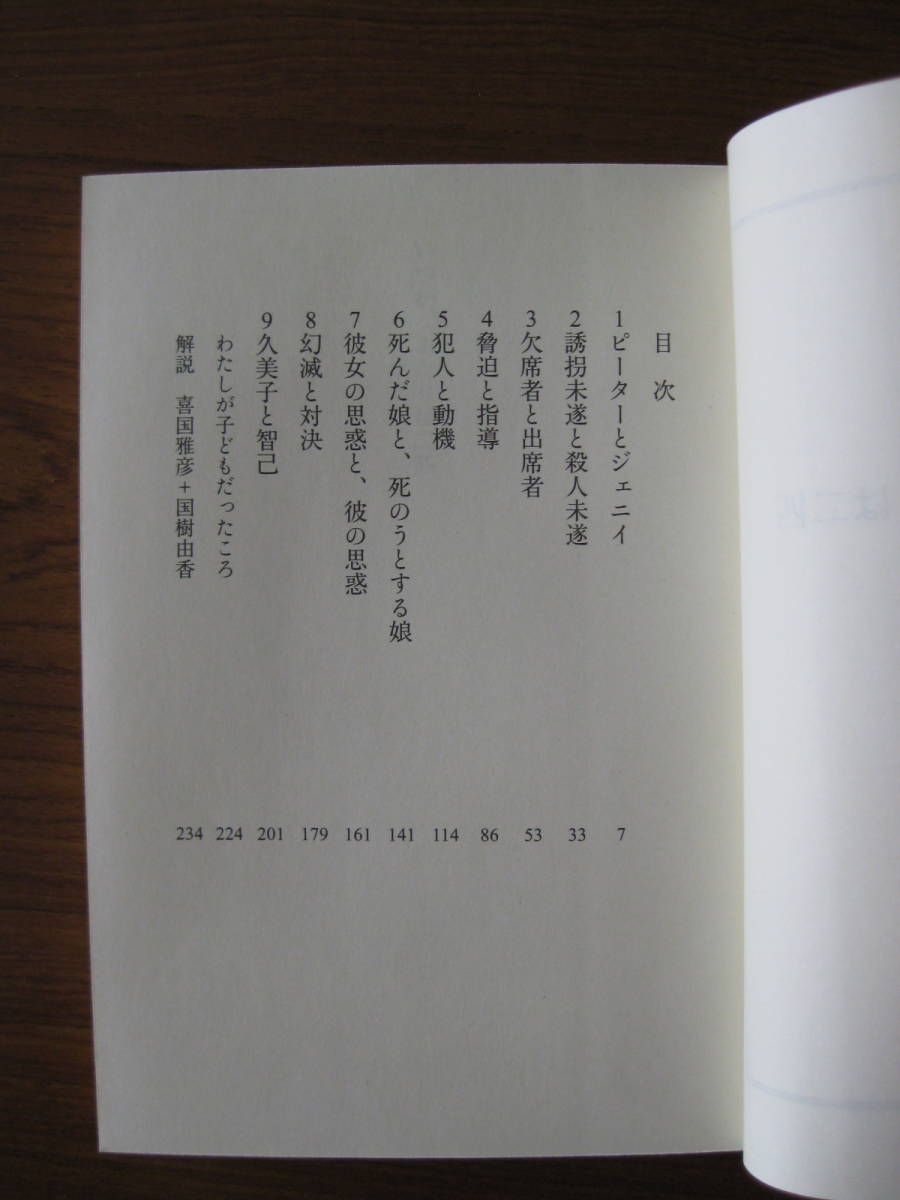 目次
1 ピーターとジェニイ 7
2 誘拐未遂と殺人未遂 33
3 欠席者と出席者 53
4 脅迫と指導 86
5 犯人と動機 114
6 死んだ娘と、死のうとする娘 141
7 彼女の思惑と、彼の思惑 161
8 幻滅と対決 179
9 久美子と智己 201
わたしが子どもだったころ 224
解説 喜国雅彦+国樹由香 234